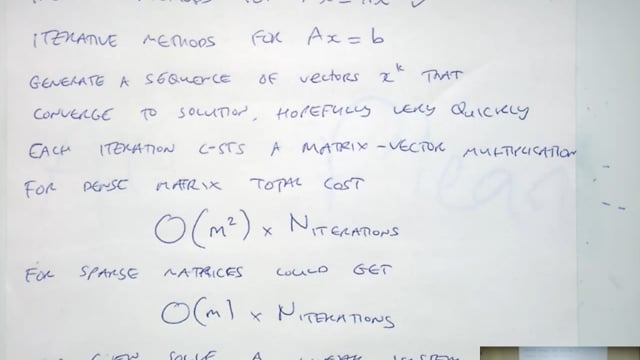 ITERATIVE METHODS FOR Ax = b
GENERATE A SEQUENCE OF VECTORS x^k THAT
CONVERGE TO SOLUTION, HOPEFULLY VERY QUICKLY
EACH ITERATION COSTS A MATRIX-VECTOR MULTIPLICATION
FOR DENSE MATRIX TOTAL COST
O(m²) × N ITERATIONS
FOR SPARSE MATRICES COULD GET
O(m) × N ITERATIONS
SOLVE A